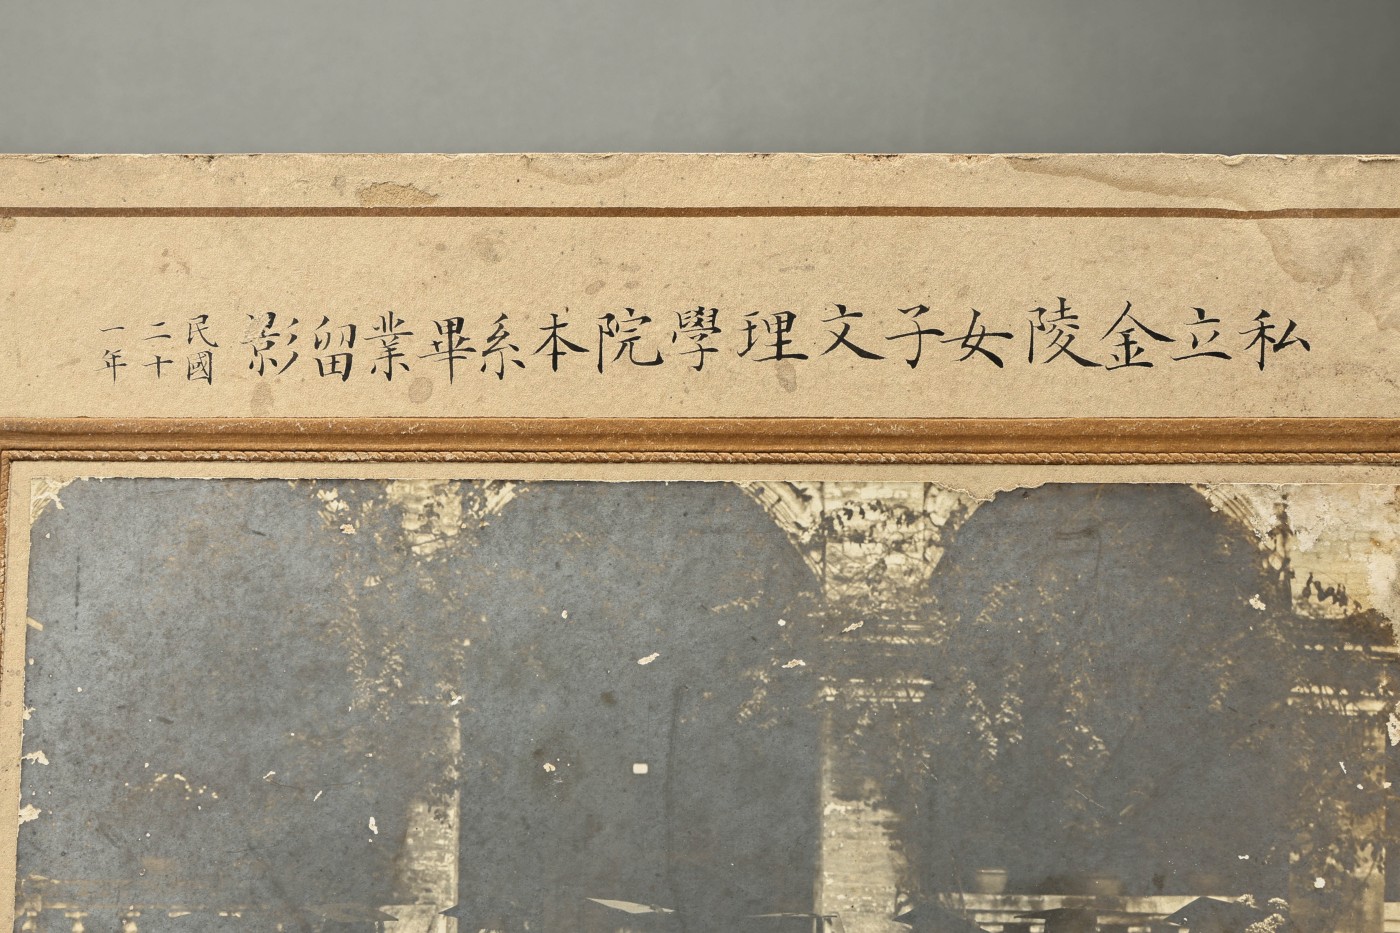 私立金陵女子文理學院本系畢業留影
民國
二十
一年